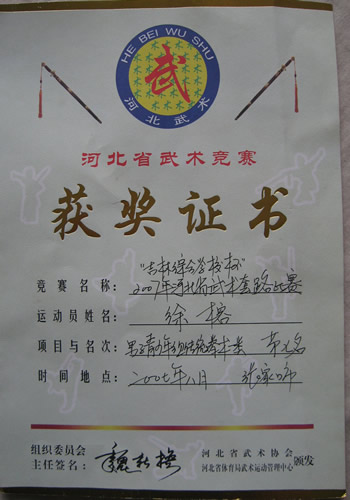 HE BEI WU SHU
武
河北武术
河北省武术竞赛
获奖证书
"吉林综合学校杯"
竞赛名称：2007年河北省武术套路比赛
运动员姓名：徐榕
项目与名次：男子青少年组传统拳术类 第七名
时间地点：二00七年八月 张家口市
组织委员会
主任签名：
河北省武术协会
河北省体育局武术运动管理中心 颁发